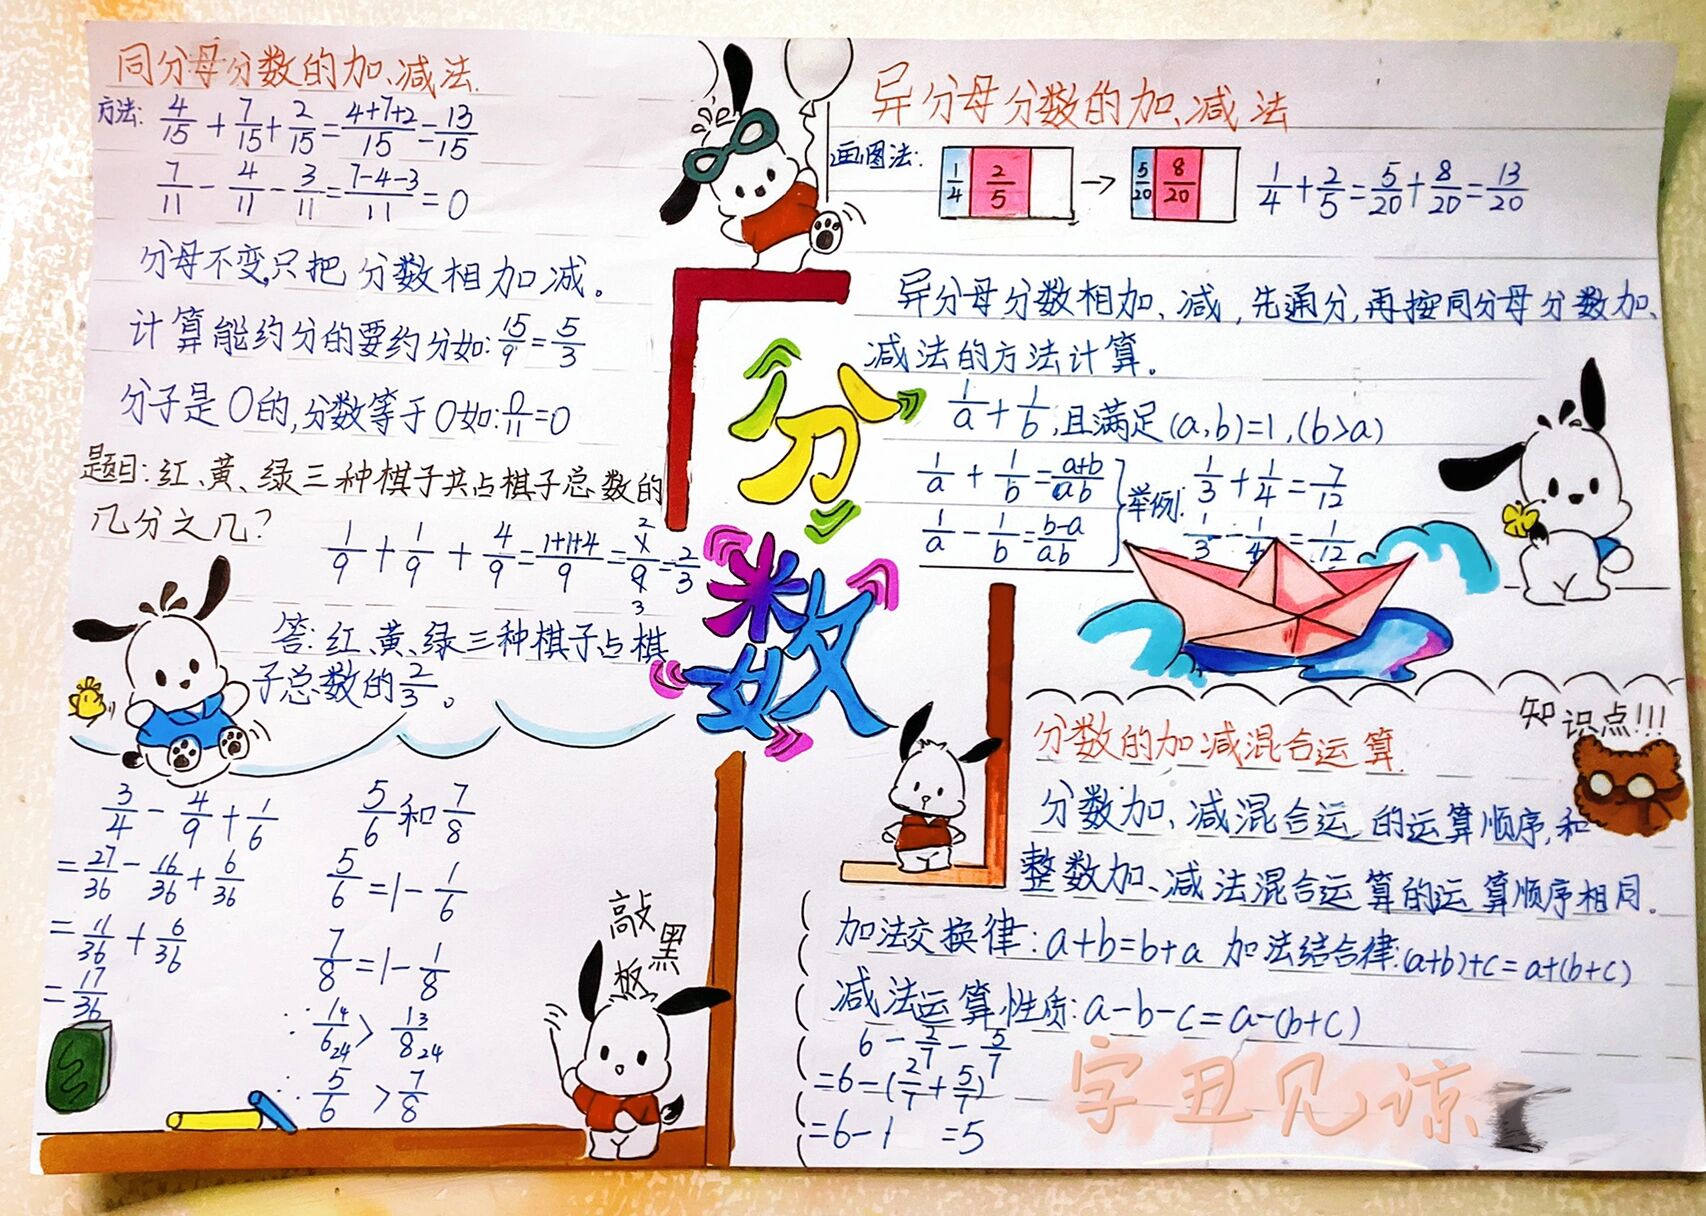 同分母分数的加、减法.
方法: 4/15 + 7/15 + 2/15 = 4+7+2/15 = 13/15
7/11 - 4/11 - 3/11 = 7-4-3/11 = 0
分母不变,只把分数相加减。
计算能约分的要约分如: 15/9 = 5/3
分子是0的,分数等于0如: 0/11 = 0
题目:红、黄、绿三种棋子共占棋子总数的
几分之几?
1/9 + 1/9 + 4/9 = 1+1+4/9 = 2/3
答:红、黄、绿三种棋子占棋
子总数的2/3。
分
数
异分母分数的加、减法
画图法: 1/4 2/5 → 5/20 8/20 1/4 + 2/5 = 5/20 + 8/20 = 13/20
异分母分数相加、减,先通分,再按同分母分数加、
减法的方法计算。
1/a + 1/b,且满足(a,b)=1,(b>a)
1/a + 1/b = a+b/ab
1/a - 1/b = b-a/ab
举例: 1/3 + 1/4 = 7/12
1/3 - 1/4 = 1/12
3/4 - 4/9 + 1/6
= 27/36 - 16/36 + 6/36
= 11/36 + 6/36
= 17/36
5/6 和 7/8
5/6 = 1 - 1/6
7/8 = 1 - 1/8
∵ 1/6 > 1/8
4/24 3/24
∴ 5/6 > 7/8
敲
黑
板
知识点!!!
分数的加减混合运算.
分数加、减混合运 的运算顺序,和
整数加、减法混合运算的运算顺序相同。
加法交换律:a+b=b+a 加法结合律:(a+b)+c=a+(b+c)
减法运算性质:a-b-c=a-(b+c)
6 - 2/7 - 5/7
=6-(2/7+5/7)
=6-1 =5
字丑见谅